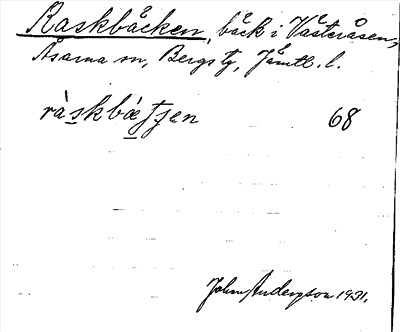 Raskbäcken, bäck i Västeråsen,
Åsarna sn, Bergs tg, Jämtl. l.
ràskbæʃʃen 68
John Anderzson 1931.